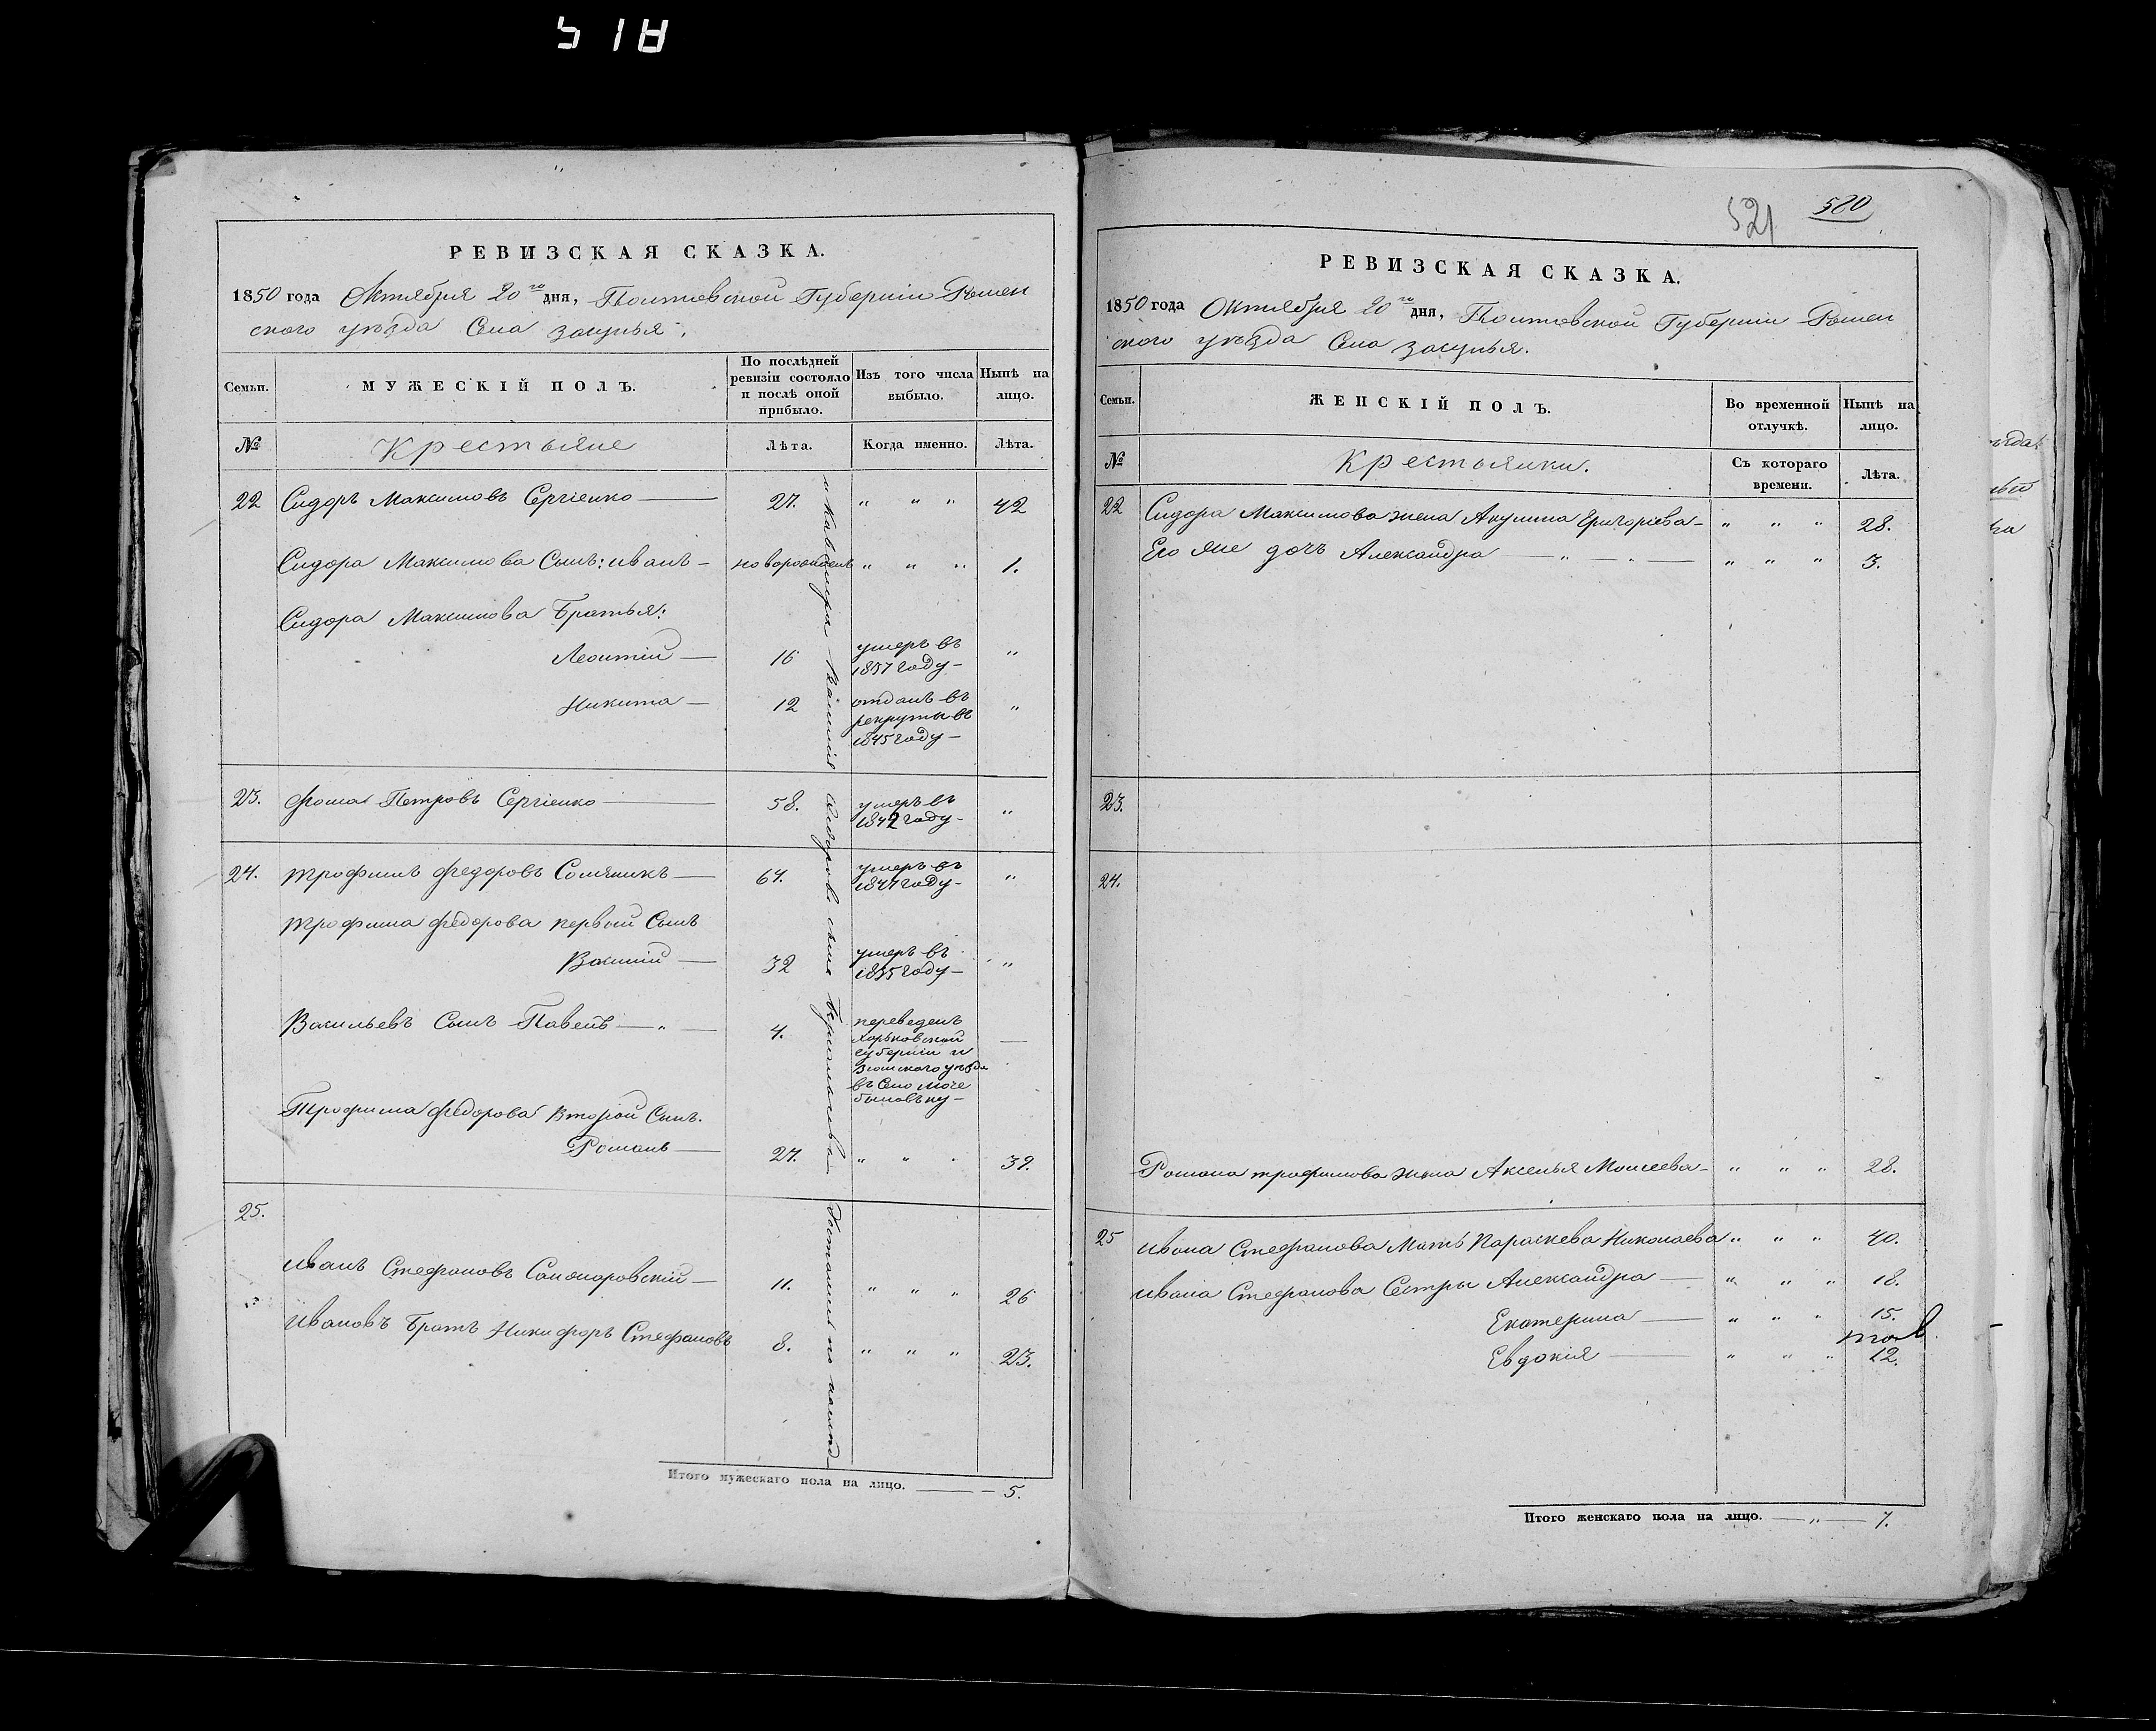 518
РЕВИЗСКАЯ СКАЗКА.
1850 года Октября 20го дня, Полтавской Губернiи Ромен
ского уѣзда Села засулья.
Семьи.
МУЖЕСКIЙ ПОЛЪ.
По послѣдней ревизiи состояло и послѣ оной прибыло.
Изъ того числа выбыло.
Нынѣ на лицо.
№
Крестьяне
Лѣта.
Когда именно.
Лѣта.
22 Сидоръ Максимовъ Сергiенко — 27. " " " 42
Сидора Максимова Сынъ: иванъ — новорожден " " " 1.
Сидора Максимова Братья:
Леонтiй — 16 умеръ въ 1837 году — "
Никита — 12 отданъ въ рекруты въ 1845 году — "
23. Фома Петровъ Сергiенко — 58. умеръ въ 1842 году — "
24. трофимъ Федоровъ Соляникъ — 64. умеръ въ 1847 году — "
трофима федорова первой Сынъ
Василiй — 32 умеръ въ 1835 году — "
Васильевъ Сынъ Павелъ — " — 4. переведенъ
Харьковской
губернiи и
Зюмского уѣзда
въ Село
—
Трофима федорова второй Сынъ.
Романъ — 24. " " " 39.
25.
иванъ Стефановъ — 11. " " " 26
ивановъ Братъ Никифоръ Стефановъ 8. " " " 23.
Итого мужескаго пола на лицо. — — 5.
521
520
РЕВИЗСКАЯ СКАЗКА.
1850 года Октября 20го дня, Полтавской Губернiи Ромен
ского уѣзда Села засулья.
Семьи.
ЖЕНСКIЙ ПОЛЪ.
Во временной отлучкѣ.
Нынѣ на лицо.
№
Крестьянки.
Съ котораго времени.
Лѣта.
22 Сидора Максимова жена Акулина Григорiева — " " " 28.
Его же дочь Александра — " — " — " " " 3.
23.
24.
Романа трофимова жена Аксенья Моисеева — " " " 28.
25 ивана Стефанова Мать Параскева Николаева " " " 40.
ивана Стефанова Сестры Александра — " " " 18.
Екатерина — " " " 15.
Евдокiя — " " " 12.
Итого женскаго пола на лицо. — " — 7.